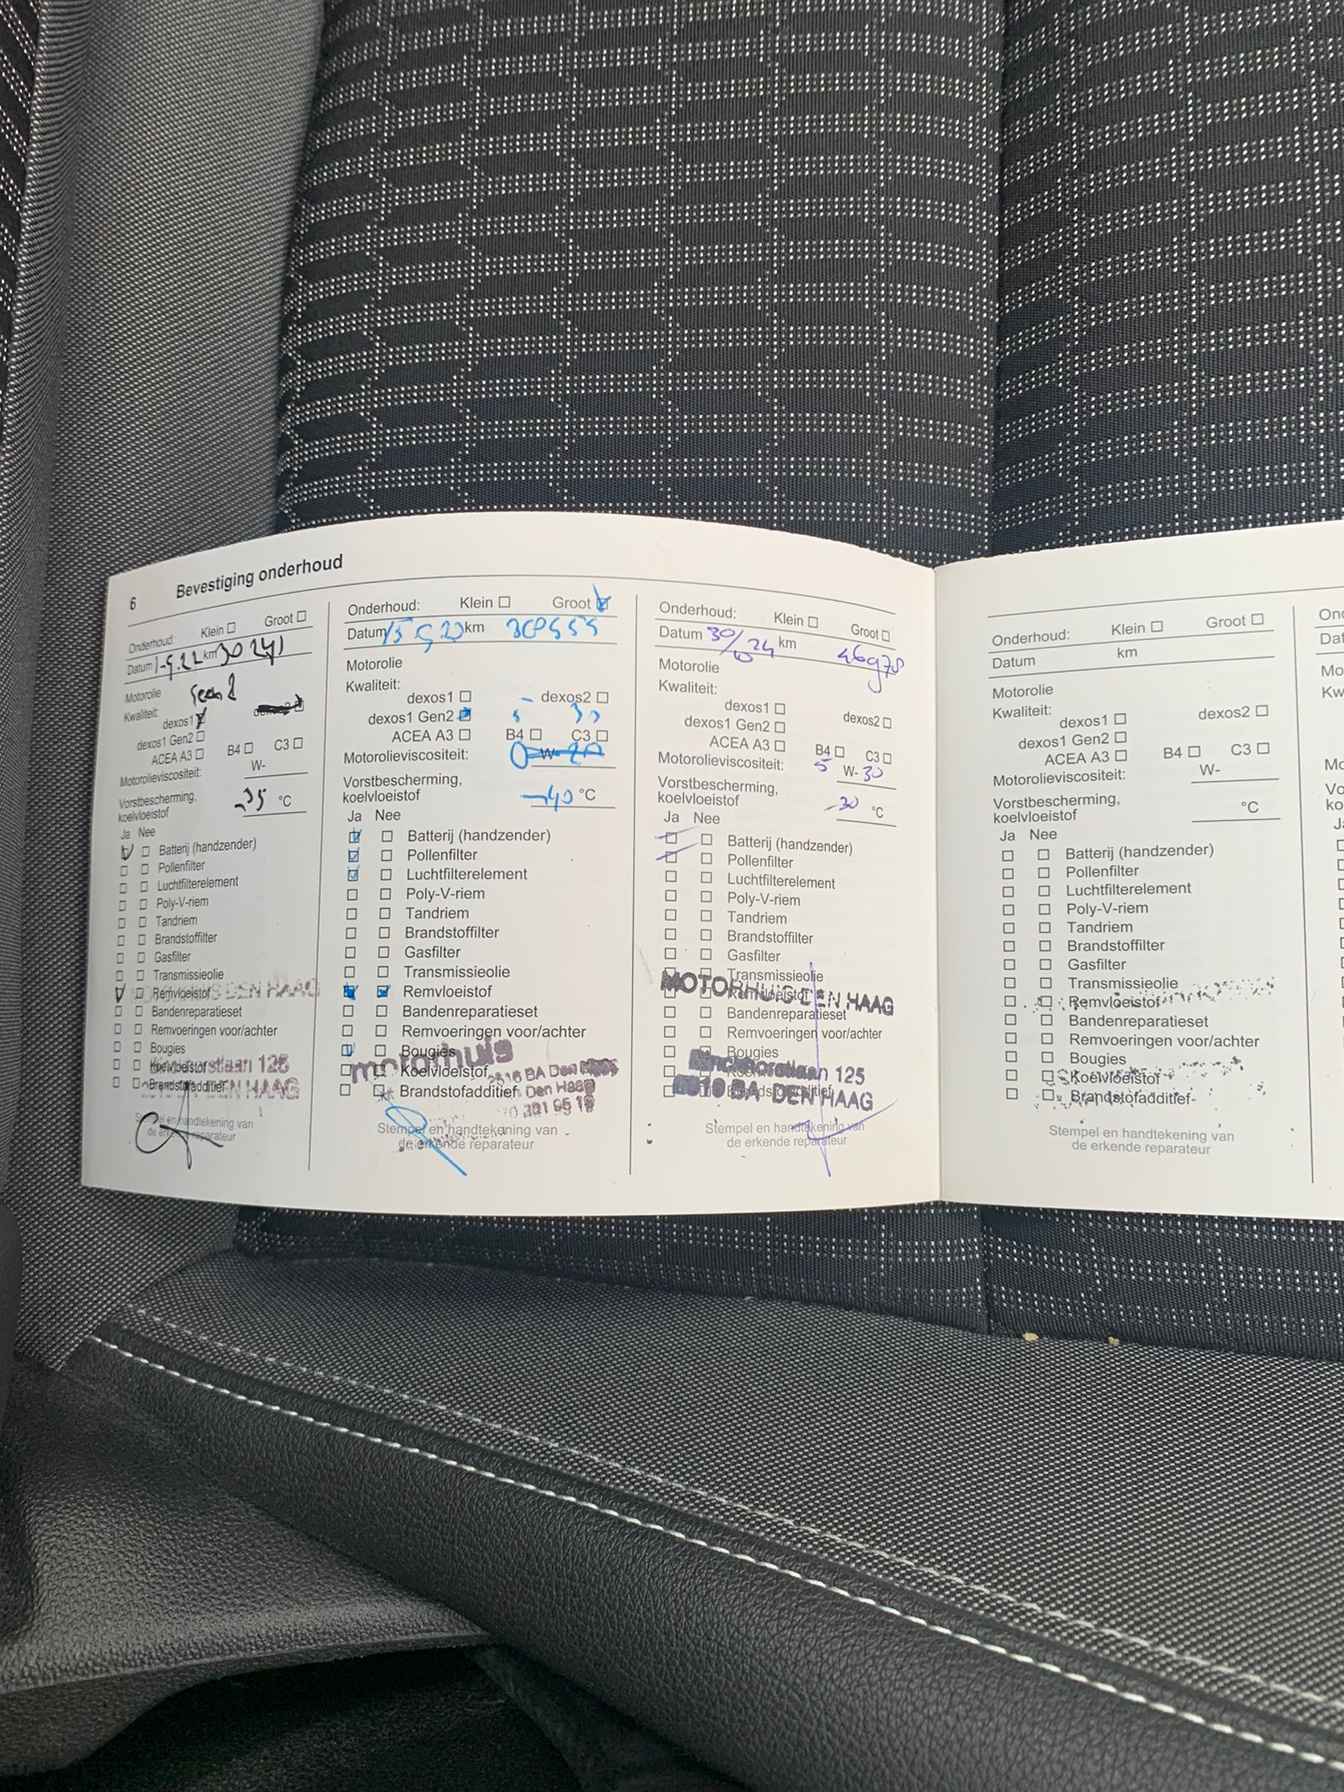 6 Bevestiging onderhoud
Onderhoud: Klein Groot
Datum 1-9.22 km 30 241
Motorolie
Kwaliteit:
dexos1
dexos1 Gen2
ACEA A3 B4 C3
Motorolieviscositeit:
W-
Vorstbescherming,
koelvloeistof -35 °C
Ja Nee
Batterij (handzender)
Pollenfilter
Luchtfilterelement
Poly-V-riem
Tandriem
Brandstoffilter
Gasfilter
Transmissieolie
Remvloeistof DEN HAAG
Bandenreparatieset
Remvoeringen voor/achter
Bougies
Koelvloeistof 125
Brandstofadditief DEN HAAG
Stempel en handtekening van
de erkende reparateur
Onderhoud: Klein Groot
Datum km
Motorolie
Kwaliteit:
dexos1 dexos2
dexos1 Gen2 5 30
ACEA A3 B4 C3
Motorolieviscositeit: W-
Vorstbescherming,
koelvloeistof -40 °C
Ja Nee
Batterij (handzender)
Pollenfilter
Luchtfilterelement
Poly-V-riem
Tandriem
Brandstoffilter
Gasfilter
Transmissieolie
Remvloeistof
Bandenreparatieset
Remvoeringen voor/achter
Bougies
motorhuis
Koelvloeistof 2516 BA Den
Brandstofadditief Den Haag
Stempel en handtekening van
de erkende reparateur
Onderhoud: Klein Groot
Datum 30/ 24 km 46978
Motorolie
Kwaliteit:
dexos1 dexos2
dexos1 Gen2
ACEA A3 B4 C3
Motorolieviscositeit: 5 W-30
Vorstbescherming,
koelvloeistof -30 °C
Ja Nee
Batterij (handzender)
Pollenfilter
Luchtfilterelement
Poly-V-riem
Tandriem
Brandstoffilter
Gasfilter
Transmissieolie
MOTORHUIS DEN HAAG
Remvloeistof
Bandenreparatieset
Remvoeringen voor/achter
Bougies
Binckhorstlaan 125
2516 BA DEN HAAG
Stempel en handtekening van
de erkende reparateur
Onderhoud: Klein Groot
Datum km
Motorolie
Kwaliteit:
dexos1 dexos2
dexos1 Gen2
ACEA A3 B4 C3
Motorolieviscositeit: W-
Vorstbescherming,
koelvloeistof °C
Ja Nee
Batterij (handzender)
Pollenfilter
Luchtfilterelement
Poly-V-riem
Tandriem
Brandstoffilter
Gasfilter
Transmissieolie
Remvloeistof
Bandenreparatieset
Remvoeringen voor/achter
Bougies
Koelvloeistof
Brandstofadditief
Stempel en handtekening van
de erkende reparateur